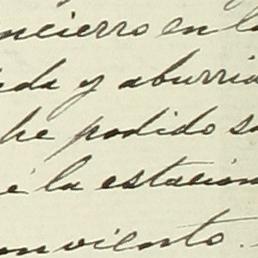 ncierro en l
da y aburrid
he podido s
i la estacion
onviento.